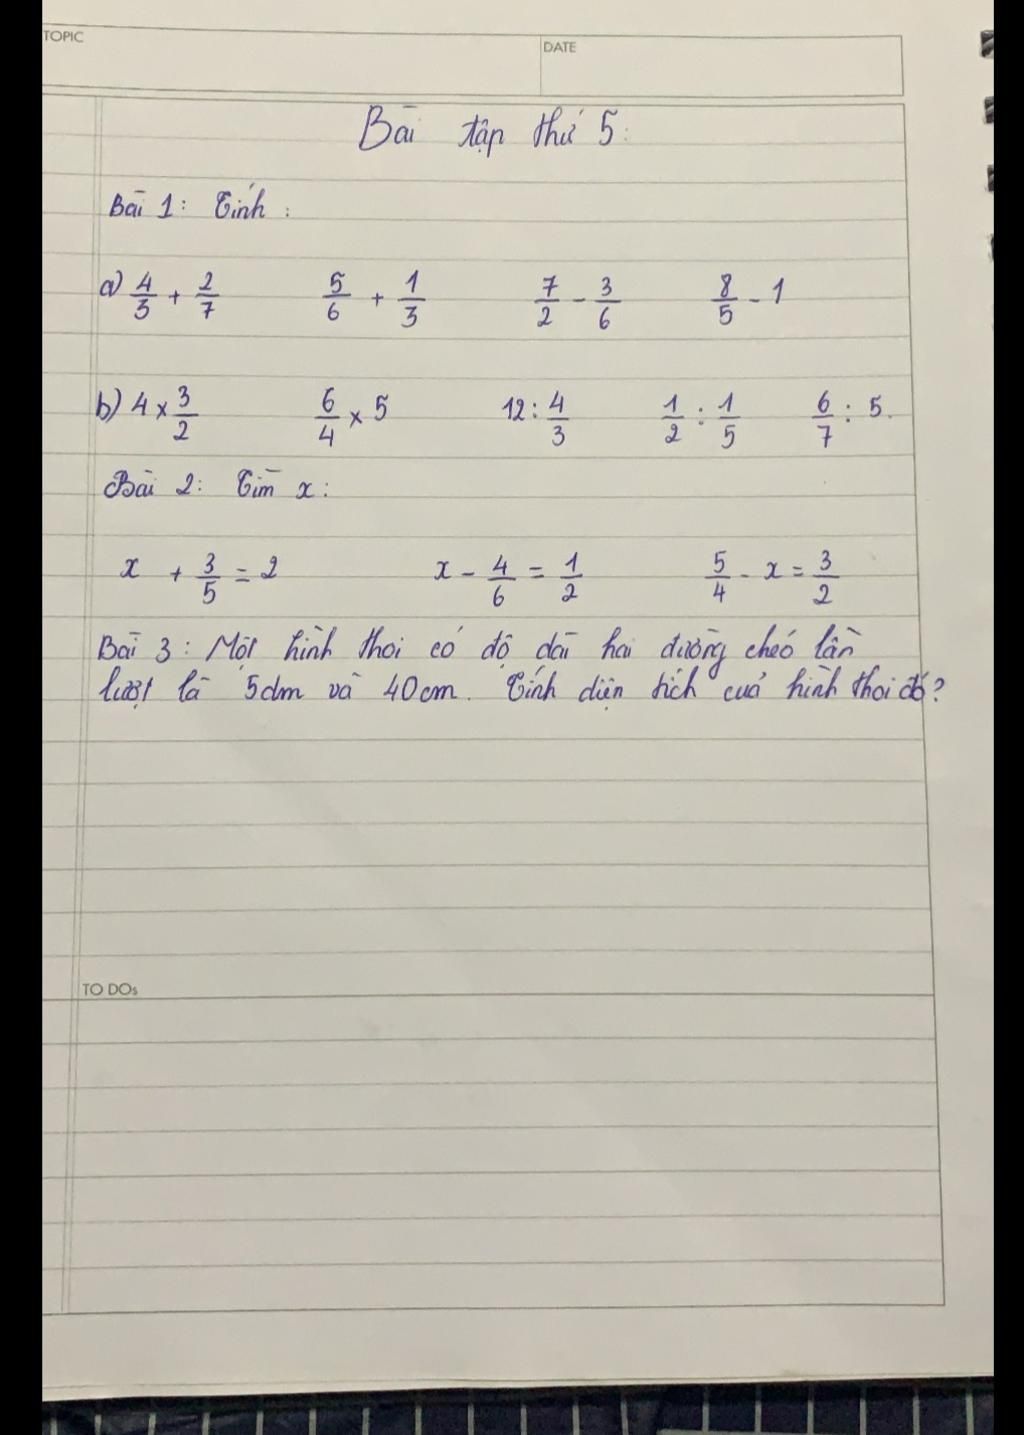 TOPIC
DATE
Bài tập thứ 5:
Bài 1: Tính:
a) 4/3 + 2/7 5/6 + 1/3 7/2 - 3/6 8/5 - 1
b) 4 x 3/2 6/4 x 5 12 : 4/3 1/2 : 1/5 6/7 : 5.
Bài 2: Tìm x:
x + 3/5 = 2 x - 4/6 = 1/2 5/4 - x = 3/2
Bài 3: Một hình thoi có độ dài hai đường chéo lần
lượt là 5dm và 40cm. Tính diện tích của hình thoi đó?
TO DOs